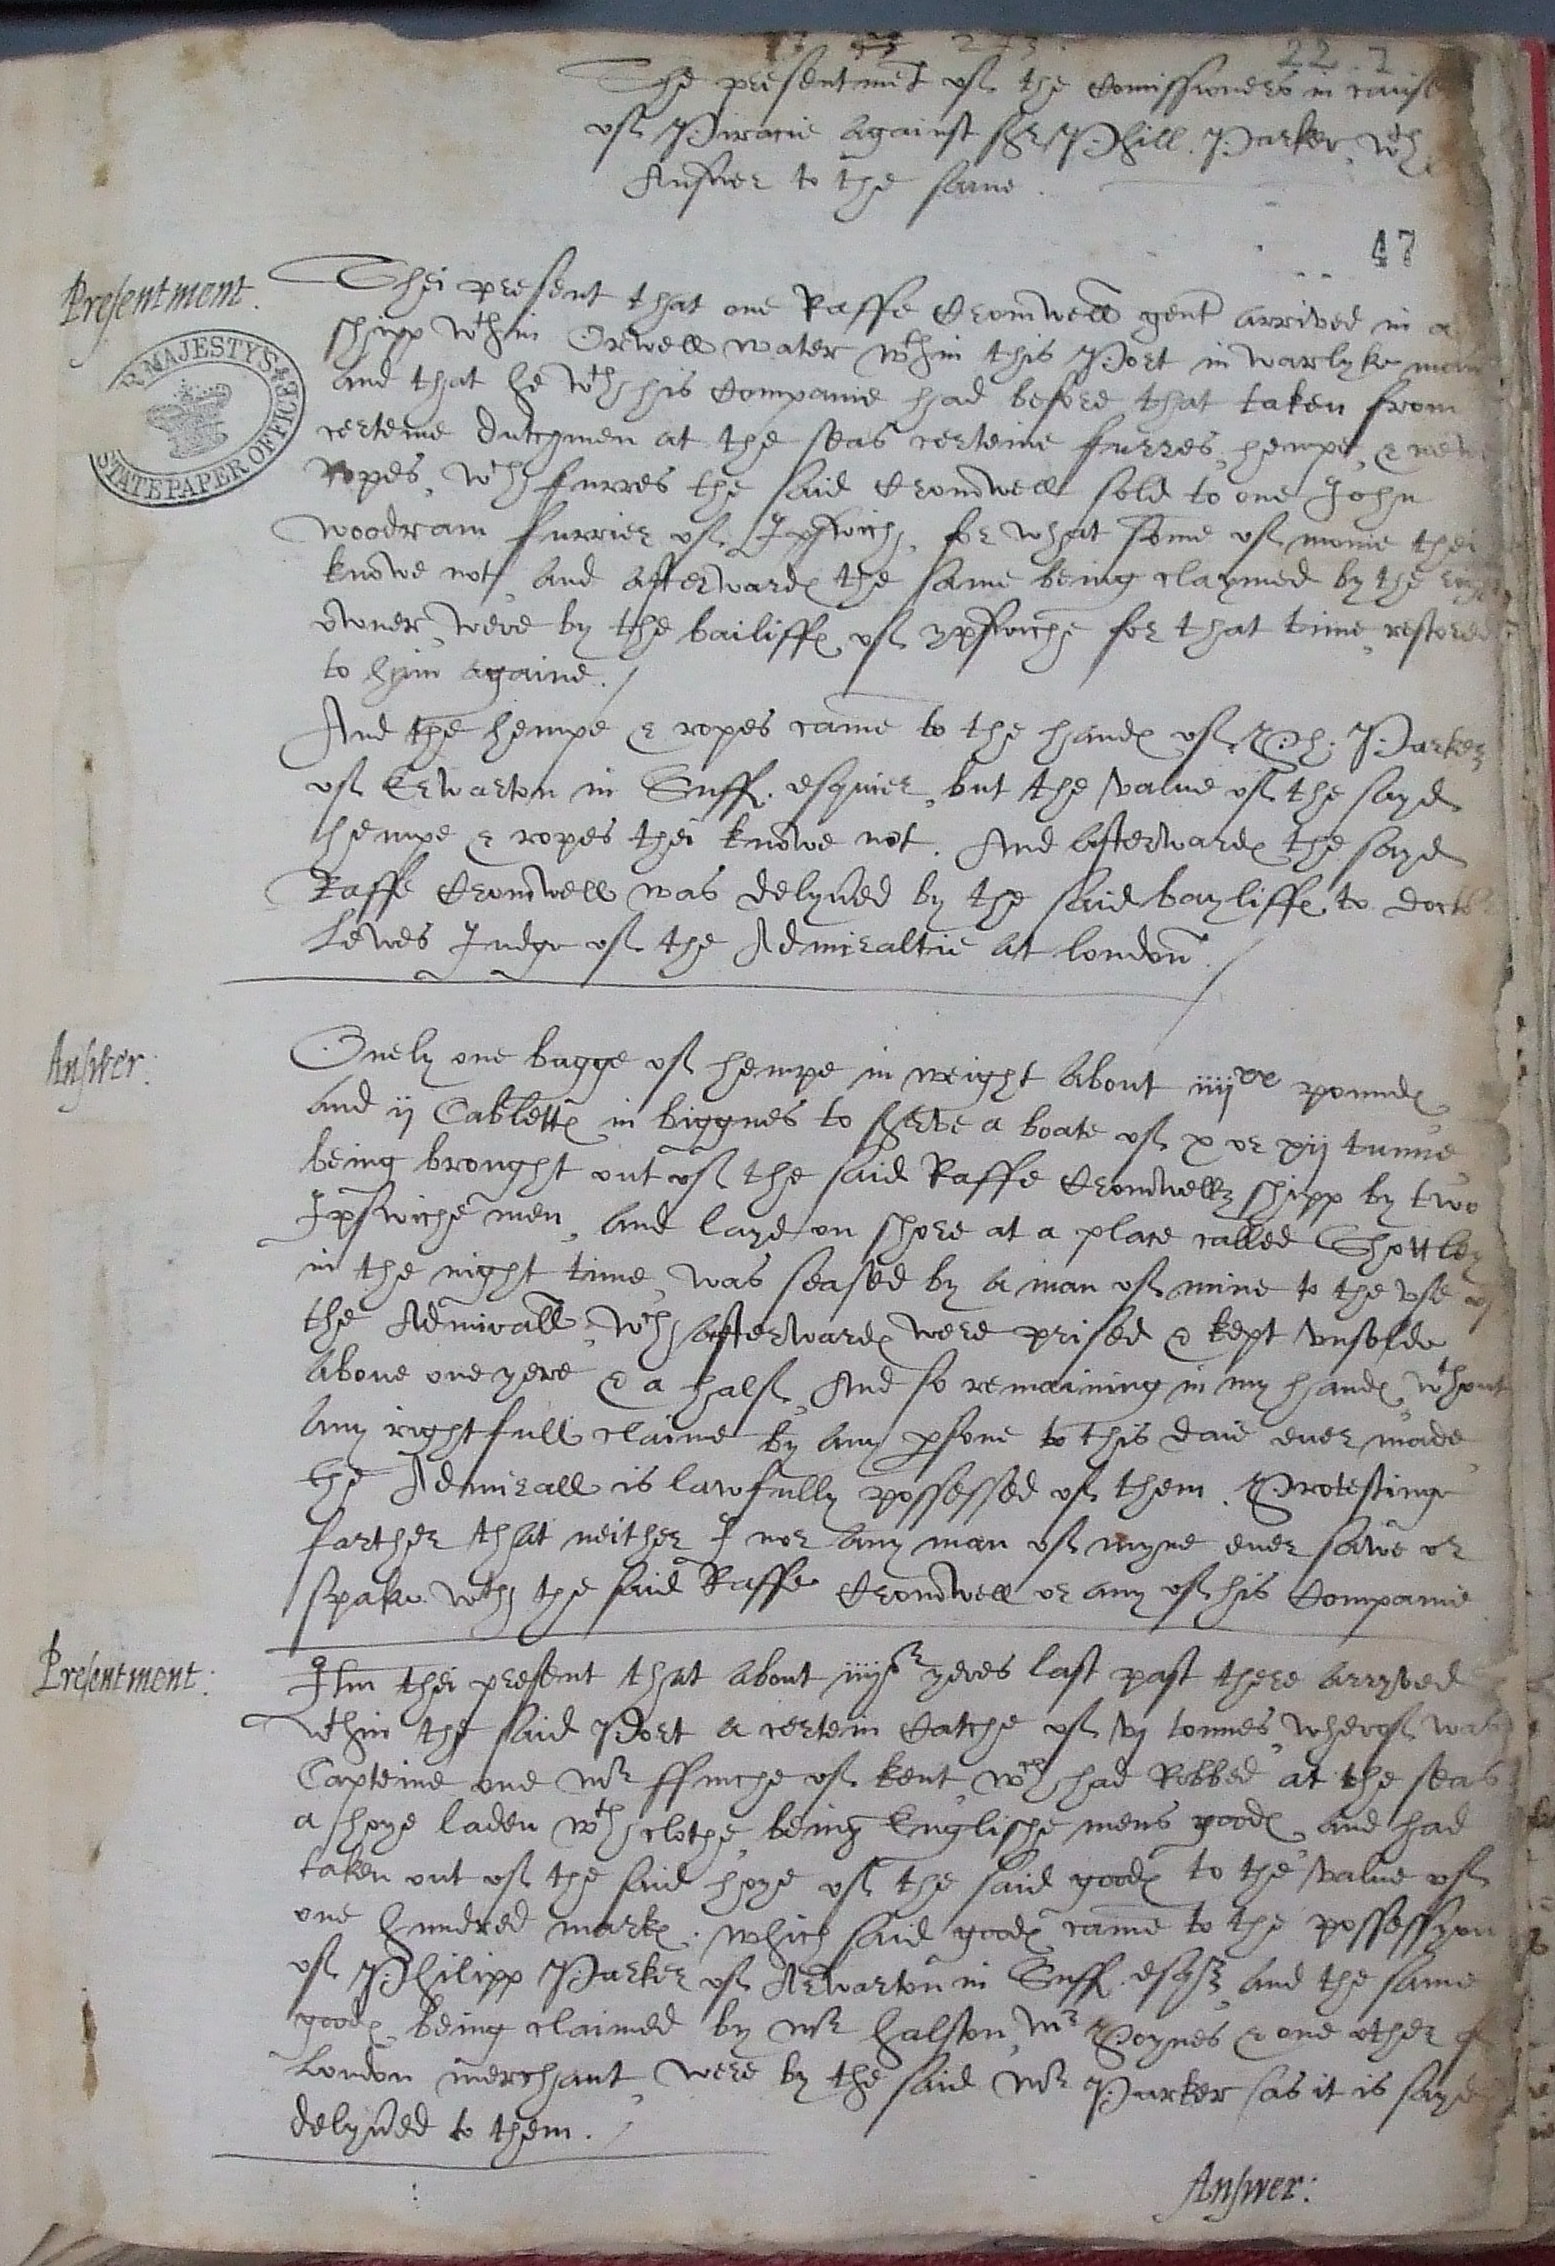 22. 1
The presentmet of the Comissioners in cause
of Piracie against Sr Phill. Parker, wth
Answer to the same.
47
Presentment.
Thei present that one Raffe Cromwell gent arrived in a
shipp wthin Orwell water wthin this Port in warlyke
and that he wth his Companie had before that taken from
certeine dutchmen at the seas certeine furres, hempe, &
ropes, wch furres the said Cromwell sold to one John
Woodram furrier of Ipswich, for what some of monie thei
knowe not, and afterwards the same being claymed by the
owner, were by the bailiffs of ypswiche for that time, restored
to hym againe./
R MAJESTY'S
STATE PAPER OFFICE
And the hempe & ropes came to the hands of Ph: Parker
of Erwarton in Suff. esquier, but the value of the sayd
hempe & ropes thei knowe not. And afterwards the sayd
Raffe Cromwell was delyued by the said bayliffs to doctor
Lewes Judge of the Admiraltie at london./
Answer:
Onely one bagge of hempe in weight about iiijxx pounds
and ij Cabletts in biggnes to serve a boate of x or xij tunne
being brought out of the said Raffe Cromwells shipp by two
Ipswiche men, and layd on shore at a place called Shottley
in the night time, was seased by a man of mine to the vse of
the Admirall, wch afterwards were prised & kept vnsolde
aboue one yere & a half, And so remaining in my hands, wthout
any rightfull claime by any psone to this daie euer made,
the Admirall is lawfully possessed of them. Protestinge
farther that neither I nor any man of myne euer sawe or
spake wth the said Raffe Cromwell or any of his Companie
Presentment:
Itm thei present that about iiijor yeres last past there arryved
wthin the said Port a certein Catche of vj tonnes, wherof was
Capteine one Mr ffinche of kent, wch had Robbed at the seas
a hoye laden wth clothe, being Englishe mens goods, and had
taken out of the said hoye of the said goods to the value of
one hundred marks. which said goods came to the possessyon
of Philipp Parker of Arwarton in Suff. esqr, and the same
goods, being claimed by Mr Halston, Mr Poynes & one other of
London merchant, were by the said Mr Parker (as it is sayd
delyued to them./
Answer: